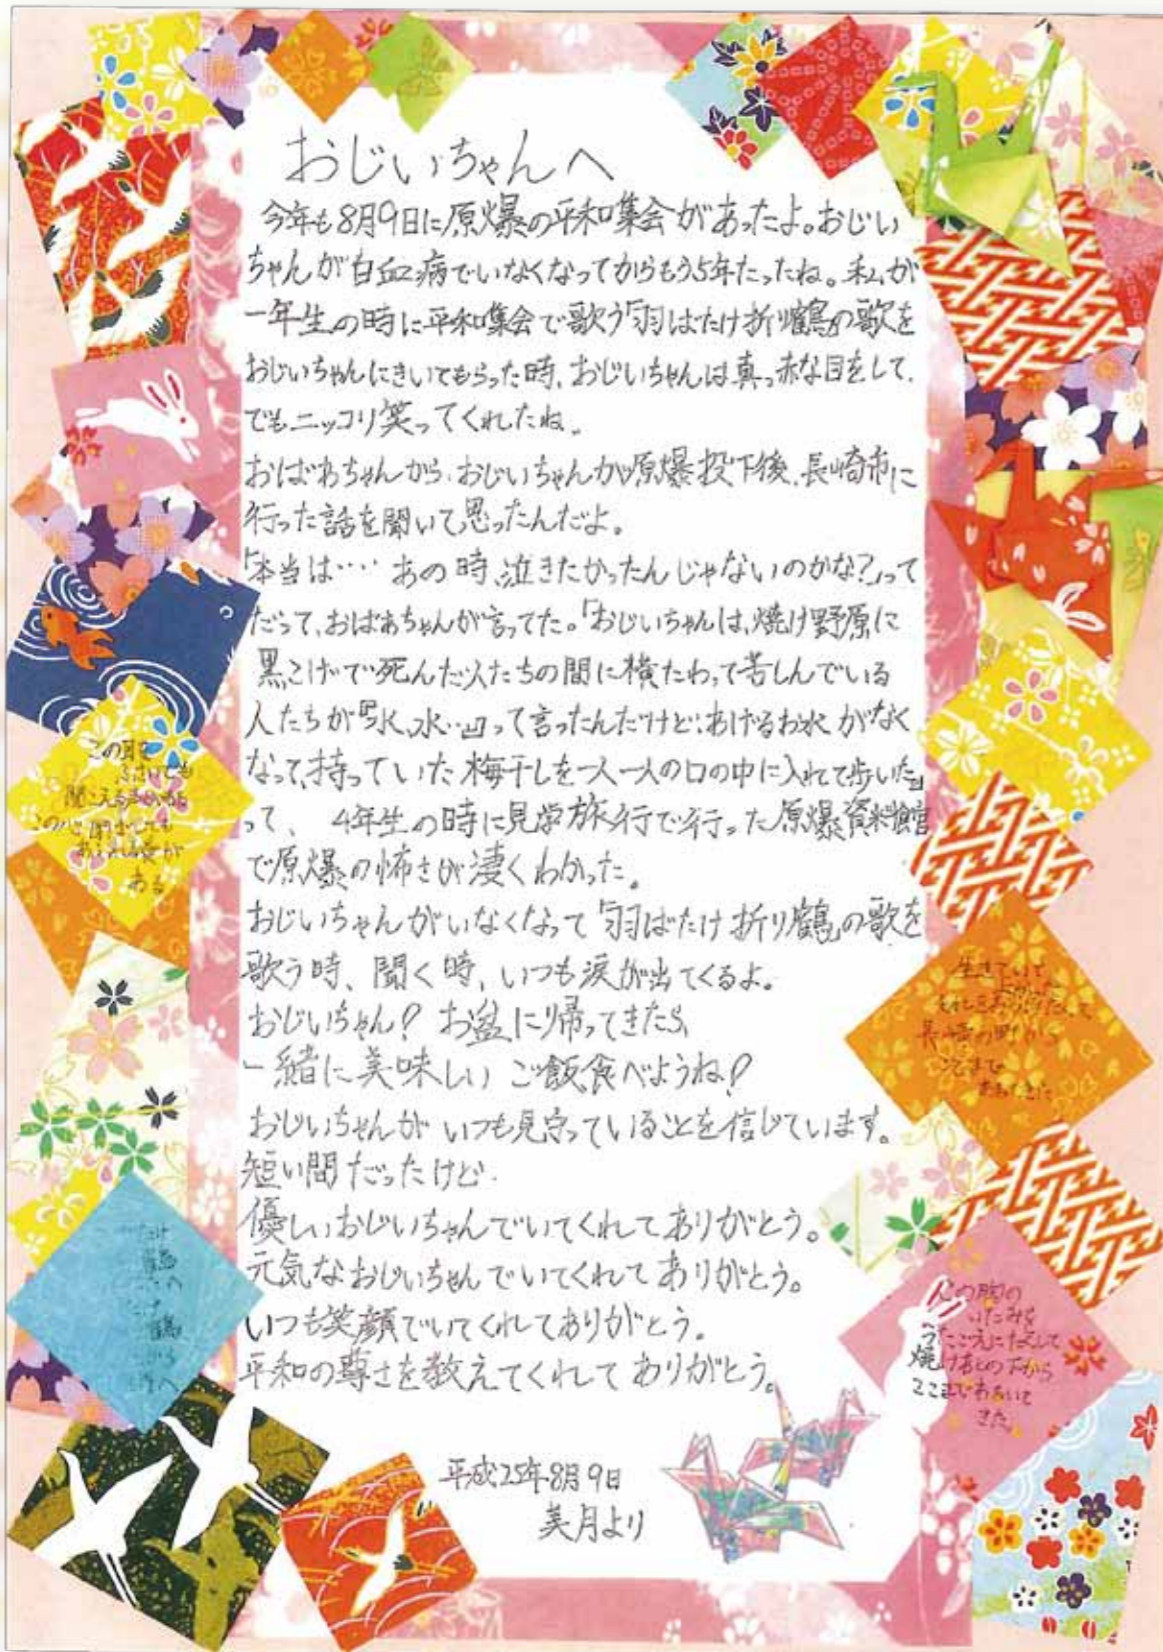 おじいちゃんへ
今年も8月9日に原爆の平和集会があったよ。おじい
ちゃんが白血病でいなくなってからもう5年たったね。私が
一年生の時に平和集会で歌う「羽ばたけ折り鶴」の歌を
おじいちゃんにきいてもらった時、おじいちゃんは真っ赤な目をして、
でもニッコリ笑ってくれたね。
おばあちゃんから、おじいちゃんが原爆投下後、長崎市に
行った話を聞いて思ったんだよ。
「本当は…あの時、泣きたかったんじゃないのかな?」って
だって、おばあちゃんが言ってた。「おじいちゃんは、焼け野原に
黒こげで死んだ人たちの間に横たわって苦しんでいる
人たちが『水、水…』って言ったんだけど、あげるお水がなく
なって、持っていた梅干しを一人一人の口の中に入れて歩いた」
って、4年生の時に見学旅行で行った原爆資料館
で原爆の怖さが凄くわかった。
おじいちゃんがいなくなって「羽ばたけ折り鶴」の歌を
歌う時、聞く時、いつも涙が出てくるよ。
おじいちゃん?お盆に帰ってきたら、
一緒に美味しいご飯食べようね?
おじいちゃんがいつも見守っていることを信じています。
短い間だったけど
優しいおじいちゃんでいてくれてありがとう。
元気なおじいちゃんでいてくれてありがとう。
いつも笑顔でいてくれてありがとう。
平和の尊さを教えてくれてありがとう。
平成25年8月9日
美月より
この耳を
ふさいでも
聞こえる声がある
この心
ある
生きていて
長崎の町から
ここまで
人の胸の
いたみを
うたごえにたくして
焼けあとの下から
ここまであるいて
きた。
鶴
鶴